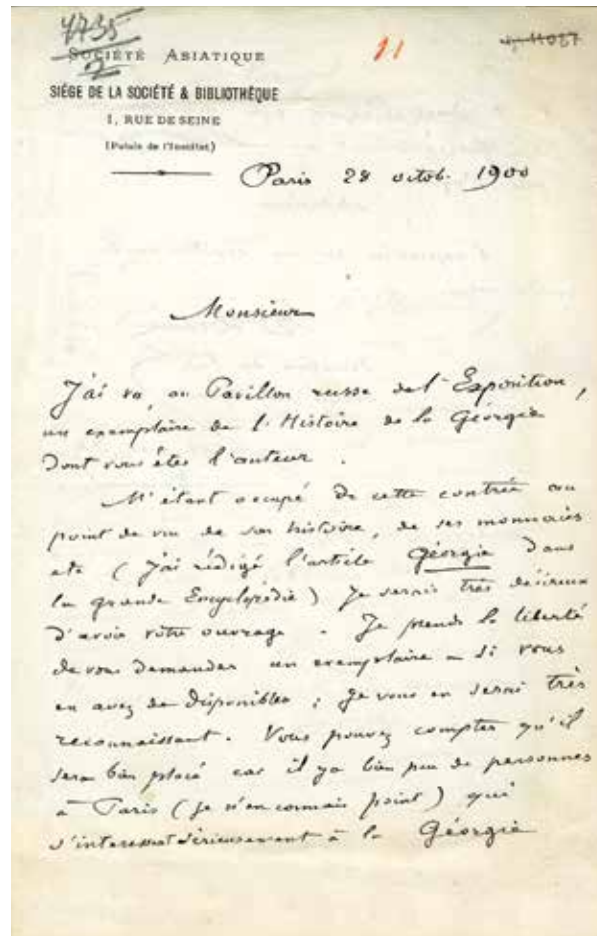 4735
2
SOCIÉTÉ ASIATIQUE
11
11037
SIÉGE DE LA SOCIÉTÉ & BIBLIOTHÈQUE
1, RUE DE SEINE
(Palais de l'Institut)
Paris 28 octob. 1900
Monsieur
J'ai vu, au Pavillon russe de l'Exposition,
un exemplaire de l'Histoire de la Géorgie
dont vous êtes l'auteur.
M'étant occupé de cette contrée au
point de vue de son histoire, de ses monnaies
etc (J'ai rédigé l'article Géorgie dans
la grande Encyclopédie) Je serais très désireux
d'avoir votre ouvrage. Je prends la liberté
de vous demander un exemplaire - si vous
en avez de disponibles ; Je vous en serai très
reconnaissant. Vous pouvez compter qu'il
sera bien placé car il y a bien peu de personnes
à Paris (je n'en connais point) qui
s'interessent sérieusement à la Géorgie